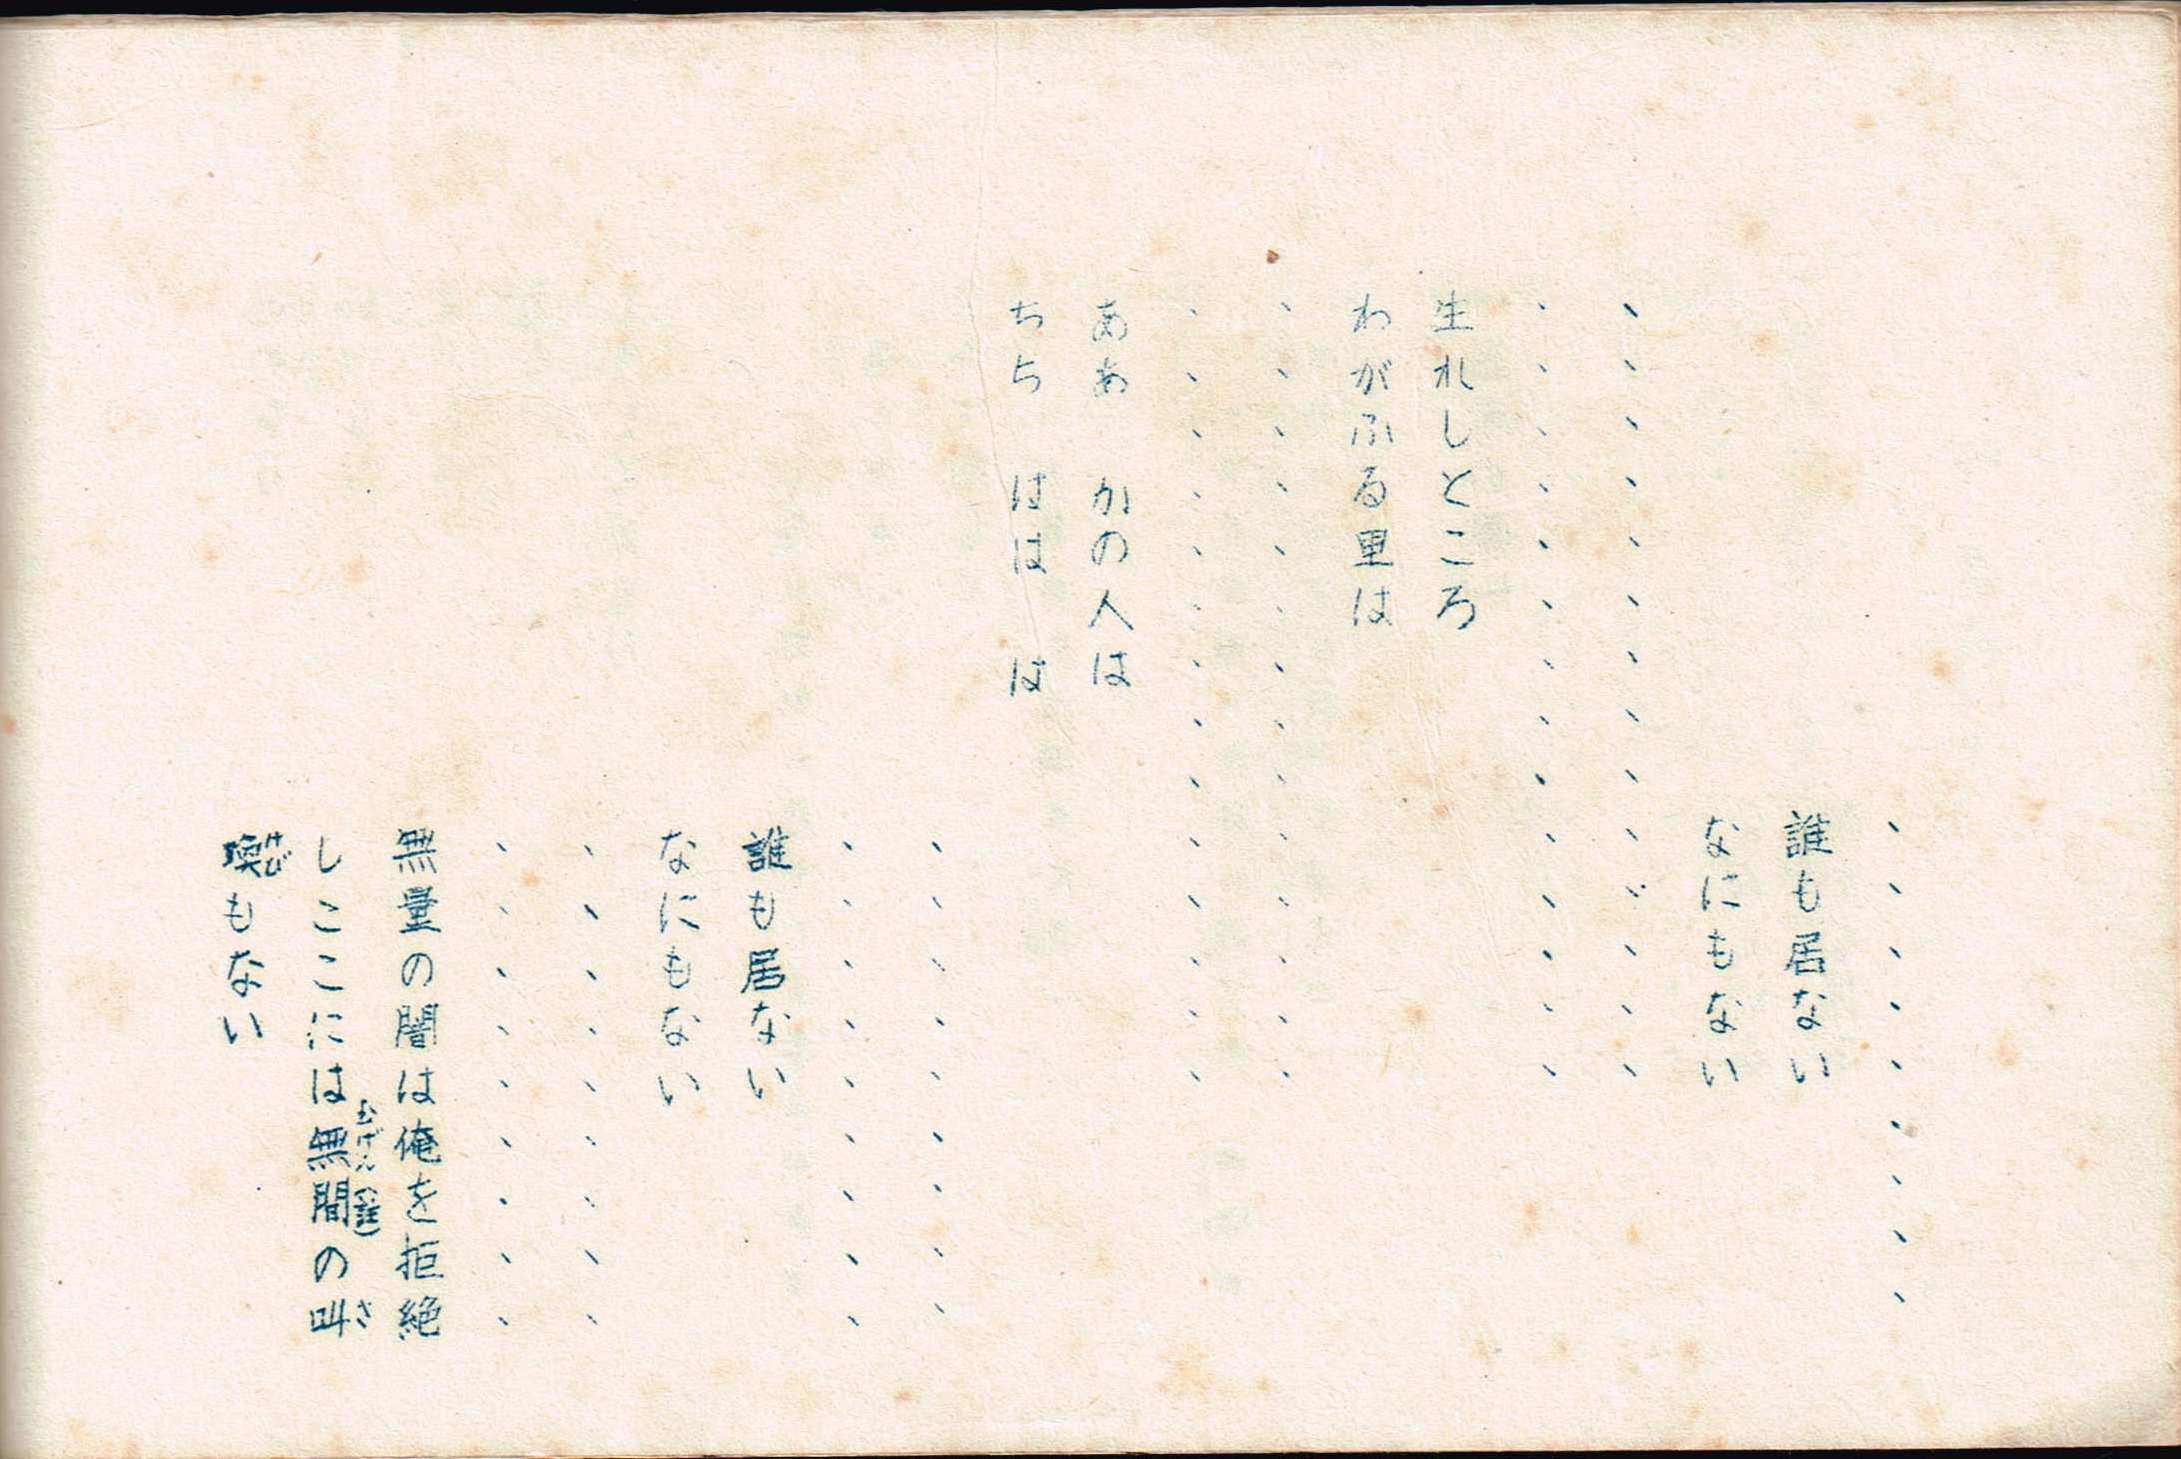 、、、、、、、、、
誰も居ない
なにもない
、、、、、、、、、、、、、、
、、、、、、、、、、、、、、
生れしところ
わがふる里は
、、、、、、、、、、、、、、
、、、、、、、、、、、、、、
ああ　かの人は
ちち　はは　は
、、、、、、、、、
、、、、、、、、、
誰も居ない
なにもない
、、、、、、、、、
、、、、、、、、、
無量の闇は俺を拒絶
むげん　さ
しここには無間の叫
けび
喚もない